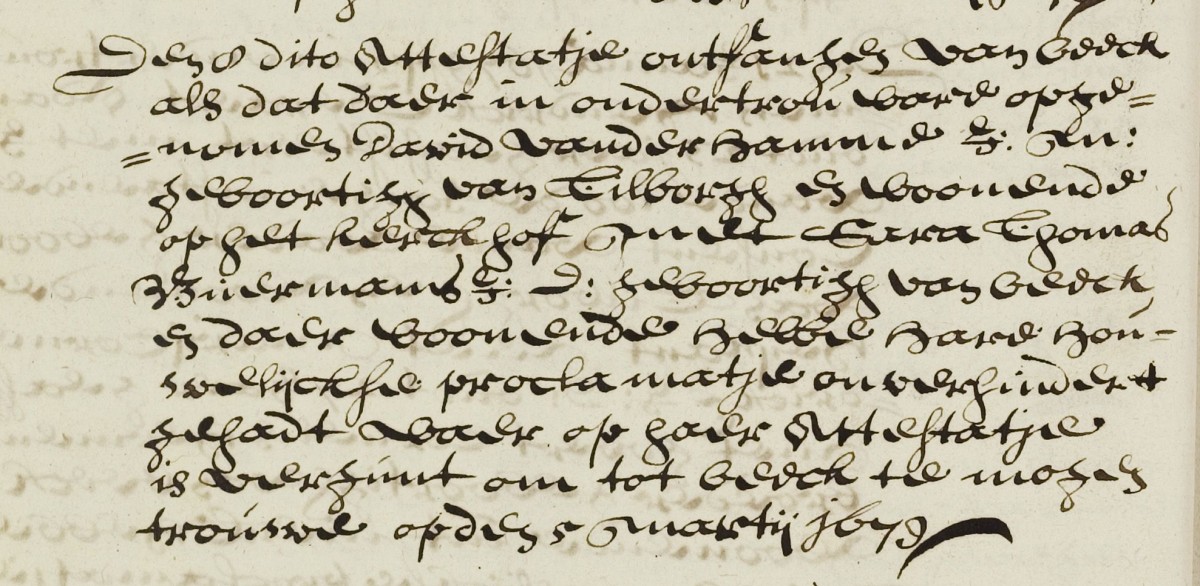 Den 8 dito Attestatje ontfangen van beeck
als dat daer in ondertrou ware opge=
=nomen David vander Hamme j: m:
geboortigh van Tilborgh en woonende
op het kerckhof met Sara Thomas
Buermans j: d: geboortigh van beeck
en daer woonende hebbe hare hou-
welijckse proclamatje onverhindert
gehadt waer op haer Attestatje
is vergunt om tot beeck te mogen
trouwe op den 5 martij 1679